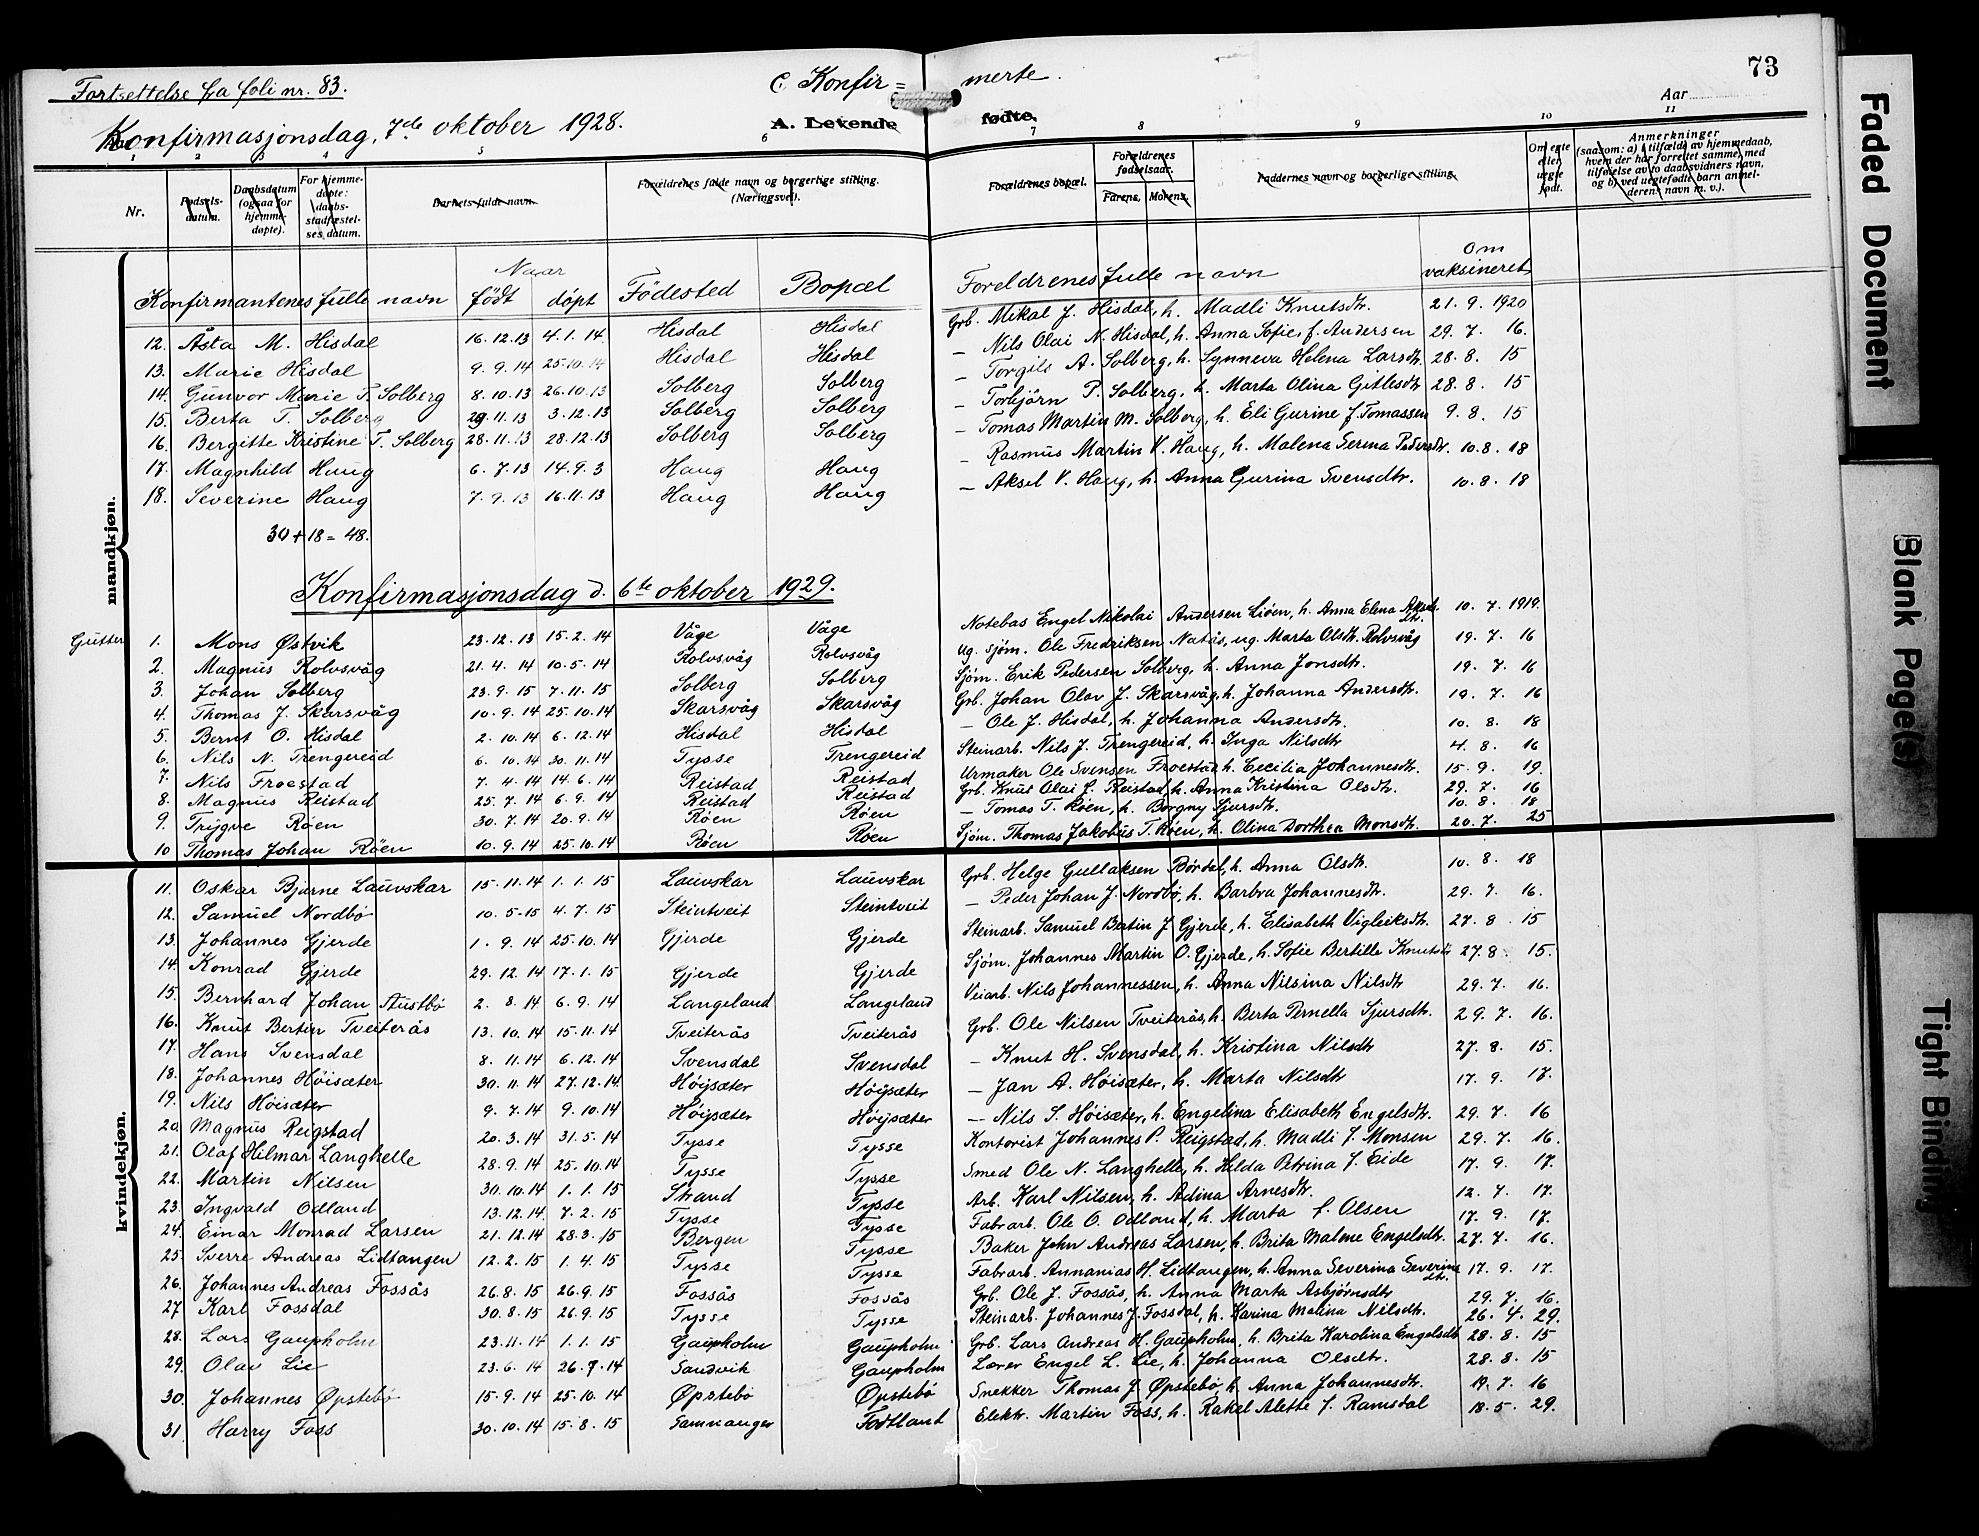 73
Fortsettelse fra foli nr. 83.
C Konfir = merte.
Konfirmasjonsdag, 7de oktober 1928.
A. Levende fødte.
Aar
1 2 3 4 5 6 7 8 9 10 11
Nr.
Fødsels-datum.
Daabsdatum (ogsaa for hjemme-døpte).
For hjemme-døpte: daabs-stadfæstel-ses datum.
Barnets fulde navn.
Forældrenes fulde navn og borgerlige stilling. (Næringsvei).
Forældrenes bopæl.
Forældrenes fødselsaar.
Farens. Morens.
Faddernes navn og borgerlige stilling.
Om egte eller uegte født.
Anmerkninger (saasom: a) i tilfælde av hjemmedaab, hvem der har forrettet samme, med tilføielse av to daabsvidners navn, og b) ved uegtefødte barn anmel-derens navn m. v.).
mandkjøn.
Konfirmantenes fulle navn Naar født døpt Födested Bopæl Foreldrenes fulle navn Om vaksineret
12. Åsta M. Hisdal 16.12.13 4.1.14. Hisdal Hisdal Grb. Mikal J. Hisdal, h. Madli Knutsdtr. 21.9.1920
13. Marie Hisdal 9.9.14 25.10.14 Hisdal Hisdal — Nils Olai N. Hisdal, h. Anna Sofie f. Andersen 29.7. 16.
14. Gunvor Marie T. Solberg 8.10.13 26.10.13 Solberg Solberg — Torgils A. Solberg, h. Synneva Helena Larsdtr. 28.8. 15
15. Berta T. Solberg 29.11.13 3.12.13 Solberg Solberg — Torbjörn P. Solberg, h. Marta Olina Gitlesdtr. 28.8. 15
16. Bergitte Kristine T. Solberg 28.11.13 28.12.13 Solberg Solberg — Tomas Martin M. Solberg, h. Eli Gurine f. Tomassen 9.8. 15
17. Magnhild Haug 6.7.13 14.9.3 Haug Haug — Rasmus Martin V. Haug, h. Malena Serina Pedersdtr. 10.8. 18
18. Severine Haug 7.9.13 16.11.13 Haug Haug — Aksel V. Haug, h. Anna Gurina Svensdtr. 10.8. 18
30 + 18 = 48.
Konfirmasjonsdag d. 6te oktober 1929.
Gutter 1. Mons Østvik 23.12.13 15.2.14 Våge Våge Notebas Engel Nikolai Andersen Liøen, h. Anna Elena Akselsdtr. 10.7.1919.
2. Magnus Rolvsvåg 21.4.14 10.5.14 Rolvsvåg Rolvsvåg Ug. sjøm. Ole Fredriksen Natås, ug. Marta Olsdtr. Rolvsvåg 19.7. 16
3. Johan Solberg 23.9.15 7.11.15 Solberg Solberg Sjøm. Erik Pedersen Solberg, h. Anna Jonsdtr. 19.7. 16
4. Thomas J. Skarsvåg 10.9.14 25.10.14 Skarsvåg Skarsvåg Grb. Johan Olav J. Skarsvåg, h. Johanna Andersdtr. 19.7. 16
5. Bernt O. Hisdal 2.10.14 6.12.14 Hisdal Hisdal — Ole J. Hisdal, h. Johanna Andersdtr. 10.8. 18
6. Nils N. Trengereid 6.10.14 30.11.14 Tysse Trengereid Steinarb. Nils J. Trengereid, h. Inga Nilsdtr 4.8. 16
7. Nils Froestad 7.4.14 14.6.14 Reistad Reistad Urmaker Ole Svensen Froestad h. Cecilia Johannesdtr. 15.9. 19.
8. Magnus Reistad 25.7.14 6.9.14 Reistad Reistad Grb. Knut Olai J. Reistad, h. Anna Kristina Olsdtr. 29.7. 16
9. Trygve Røen 30.7.14 20.9.14 Røen Røen — Tomas T. Røen, h. Borgny Sjursdtr. 10.8. 18
10 Thomas Johan Røen 10.9.14 25.10.14 Røen Røen Sjøm. Thomas Jakobus T. Røen, h. Olina Dorthea Monsdtr. 20.7. 25
kvindekjøn.
11. Oskar Bjarne Lauvskar 15.11.14 1.1.15 Lauvskar Lauvskar Grb. Helge Gullaksen Børdal, h. Anna Olsdtr. 10.8. 18
12. Samuel Nordbø 10.5-15 4.7.15 Steintveit Steintveit — Peder Johan J. Nordbø, h. Barbra Johannesdtr. 29.7. 16.
13. Johannes Gjerde 1.9.14 25.10.14 Gjerde Gjerde Steinarb. Samuel Bertin J. Gjerde, h. Elisabeth Vigleiksdtr. 27.8 15
14. Konrad Gjerde 29.12.14 17.1.15 Gjerde Gjerde Sjøm. Johannes Martin O. Gjerde, h. Sofie Bertille Knutsdtr 27.8. 15.
15. Bernhard Johan Austbø 2.8.14 6.9.14 Langeland Langeland Veiarb. Nils Johannessen, h. Anna Nilsina Nilsdtr 29.7. 16.
16. Knut Bertin Tveiterås 13.10.14 15.11.14 Tveiterås Tveiterås Grb. Ole Nilsen Tveiterås, h. Berta Pernella Sjursdtr. 29.7. 16.
17. Hans Svensdal 8.11.14 6.12.14 Svensdal Svensdal — Knut H. Svensdal, h. Kristina Nilsdtr 27.8. 15.
18. Johannes Höisæter 30.11.14 27.12.14 Höysæter Höysæter — Jan A. Höisæter, h. Marta Nilsdtr 17.9. 17.
19. Nils Höisæter 9.7.14 9.10.14 Höysæter Höysæter — Nils S. Höisæter, h. Engelina Elisabeth Engelsdtr. 29.7. 16
20. Magnus Reigstad 20.3.14 31.5.14 Tysse Tysse Kontorist Johannes P. Reigstad, h. Madli f. Monsen 29.7. 16.
21. Olaf Hilmar Langhelle 28.9.14 25.10.14 Tysse Tysse Smed Ole N. Langhelle, h. Hilda Petrina f. Eide 17.9. 17.
22. Martin Nilsen 30.10.14 1.1.15 Strand Tysse Arb. Karl Nilsen, h. Adina Arnesdtr. 12.7. 17.
23. Ingvald Odland 13.12.14 7.2.15 Tysse Tysse Fabrarb. Ole O. Odland, h. Marta f. Olsen 17.9. 17.
24. Einar Monrad Larsen 21.12.14 28.3.15 Bergen Tysse Baker John Andreas Larsen, h. Brita Malene Engelsdtr. 27.7. 16.
25. Sverre Andreas Lidtangen 12.2.15 1.4.15 Tysse Tysse Fabrarb. Annanias H. Lidtangen, h. Anna Severina Severinsdtr. 17.9. 17.
26. Johannes Andreas Fossås 26.8.15 26.9.15 Fossås Fossås Grb. Ole J. Fossås, h. Anna Marta Asbjørnsdtr 29.7. 16.
27 Karl Fossdal 30.8.15 26.9.15 Tysse Tysse Steinarb. Johannes J. Fossdal, h. Karina Malina Nilsdtr. 26.4. 29.
28. Lars Gaupholm 23.11.14 1.1.15 Gaupholm Gaupholm Grb. Lars Andreas H. Gaupholm, h. Brita Karolina Engelsdtr 28.8. 15
29. Olav Lie 23.6.14 26.7.14 Sandvik Gaupholm Lærer Engel L. Lie, h. Johanna Olsdtr. 28.8. 15
30. Johannes Øpstebø 15.9.14 25.10.14 Øpstebø Øpstebø Snekker Thomas J. Øpstebø, h. Anna Johannesdtr. 19.7. 16
31. Harry Foss 30.10.14 15.8.15 Samnanger Todtland Elektr. Martin Foss, h. Rakel Alette f. Ramsdal 18.5. 29.
Faded Document
Blank Page(s)
Tight Binding